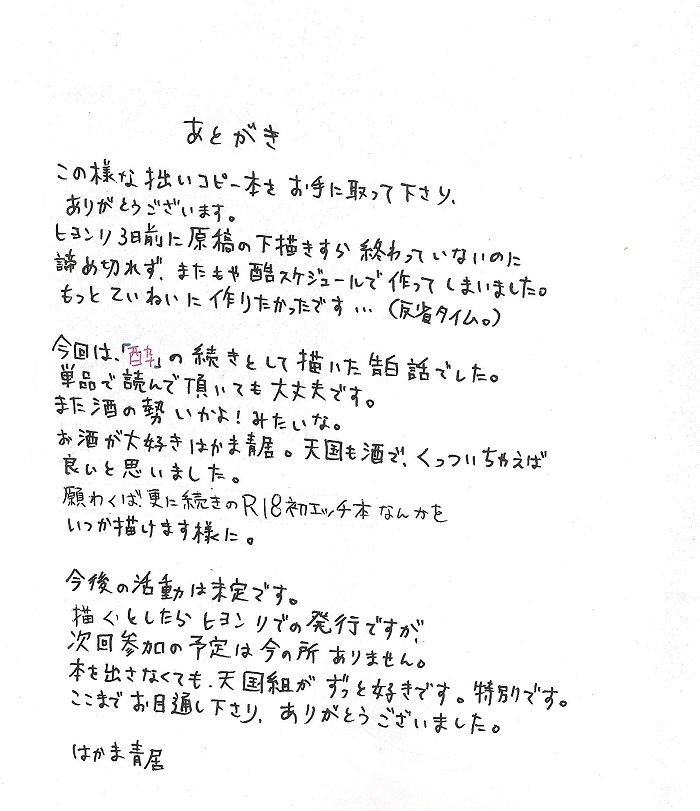 あとがき
この様な拙いコピー本をお手に取って下さり、
ありがとうございます。
ヒヨンリ3日前に原稿の下描きすら終わっていないのに
諦め切れず、またもや酷スケジュールで作ってしまいました。
もっとていねいに作りたかったです…(反省タイム。)
今回は、「酔」の続きとして描いた告白話でした。
単品で読んで頂いても大丈夫です。
また酒の勢いかよ!みたいな。
お酒が大好きはかま青居。天国も酒で、くっついちゃえば
良いと思いました。
願わくば、更に続きのR18初エッチ本なんかを
いつか描けます様に。
今後の活動は未定です。
描くとしたらヒヨンリでの発行ですが、
次回参加の予定は今の所ありません。
本を出さなくても、天国組がずっと好きです。特別です。
ここまでお目通し下さり、ありがとうございました。
はかま青居